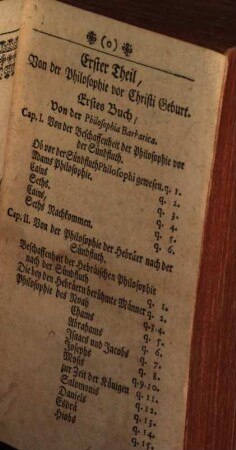 (o)
Erster Theil,
Von der Philosophie vor Christi Geburt.
Erstes Buch,
Von der Philosophia Barbarica.
Cap. I. Von der Beschaffenheit der Philosophie vor
der Sündfluth.
Ob vor der Sündfluth Philosophi gewesen. q. 1.
Adams Philosophie. q. 2.
Cains q. 3.
Seths. q. 4.
q. 5.
Seths Nachkommen. q. 6.
Cap. II. Von der Philosophie der Hebräer nach der
Sündfluth.
Beschaffenheit der Hebräischen Philosophie
nach der Sündfluth q. 1.
Die bey den Hebräern berühmte Männer q. 2.
Philosophie des Noah q. 3.4.
Chams q. 5.
Abrahams q. 6.
Isaacs und Jacobs q. 7.
Josephs q. 8.
Mosis q. 9.10.
zur Zeit der Königen q. 11.
Salomonis q. 12.
Daniels q. 13.
Esdrä q. 14.
Hiobs q. 15.